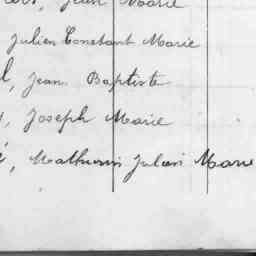 Jean Marie
Julien Constant Marie
l, Jean Baptiste
, Joseph Marie
, Mathurin Julien Marie